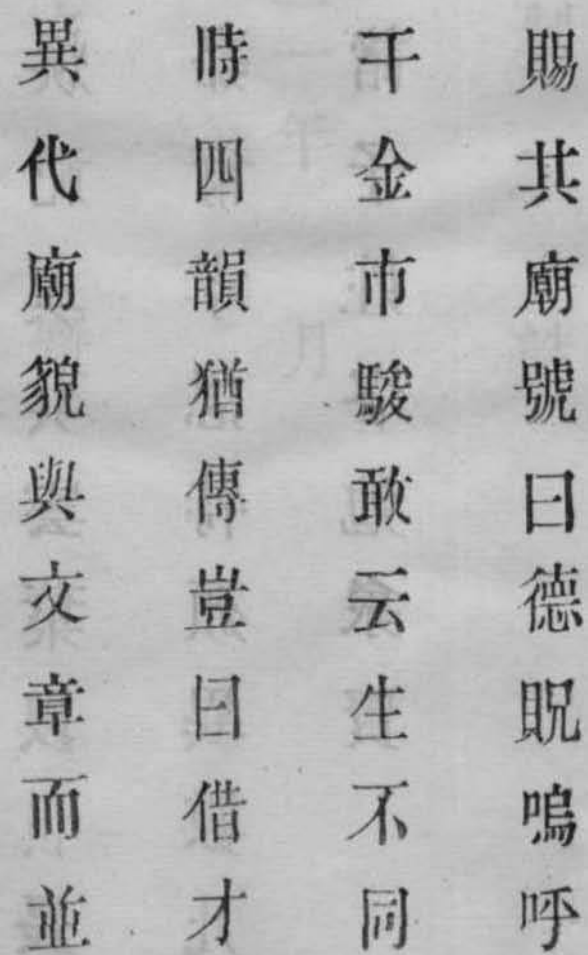 賜其廟號曰德貺嗚呼
千金市駿敢云生不同
時四韻猶傳豈曰借才
異代廟貌與文章而並